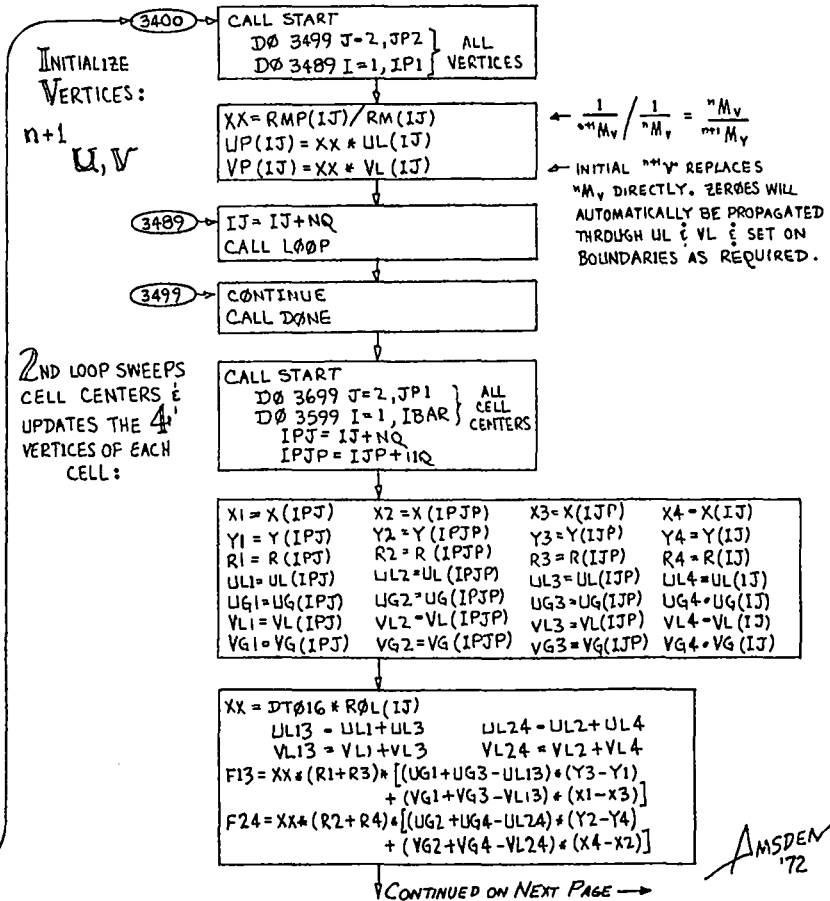 3400
CALL START
DØ 3499 J=2,JP2
DØ 3489 I=1,IP1
ALL
VERTICES
INITIALIZE
VERTICES:
n+1 U,V
XX=RMP(IJ)/RM(IJ)
UP(IJ)=XX*UL(IJ)
VP(IJ)=XX*VL(IJ)
← 1/ⁿ⁺¹Mᵥ / 1/ⁿMᵥ = ⁿMᵥ/ⁿ⁺¹Mᵥ
← INITIAL ⁿ⁺¹V REPLACES
ⁿMᵥ DIRECTLY. ZERØES WILL
AUTOMATICALLY BE PROPAGATED
THROUGH UL & VL & SET ON
BOUNDARIES AS REQUIRED.
3489
IJ=IJ+NQ
CALL LØØP
3499
CØNTINUE
CALL DØNE
2ND LOOP SWEEPS
CELL CENTERS &
UPDATES THE 4
VERTICES OF EACH
CELL:
CALL START
DØ 3699 J=2,JP1
DØ 3599 I=1,IBAR
IPJ=IJ+NQ
IPJP=IJP+NQ
ALL
CELL
CENTERS
X1=X(IPJ) X2=X(IPJP) X3=X(IJP) X4=X(IJ)
Y1=Y(IPJ) Y2=Y(IPJP) Y3=Y(IJP) Y4=Y(IJ)
R1=R(IPJ) R2=R(IPJP) R3=R(IJP) R4=R(IJ)
UL1=UL(IPJ) UL2=UL(IPJP) UL3=UL(IJP) UL4=UL(IJ)
UG1=UG(IPJ) UG2=UG(IPJP) UG3=UG(IJP) UG4=UG(IJ)
VL1=VL(IPJ) VL2=VL(IPJP) VL3=VL(IJP) VL4=VL(IJ)
VG1=VG(IPJ) VG2=VG(IPJP) VG3=VG(IJP) VG4=VG(IJ)
XX=DTØ16*RØL(IJ)
UL13=UL1+UL3 UL24=UL2+UL4
VL13=VL1+VL3 VL24=VL2+VL4
F13=XX*(R1+R3)*[(UG1+UG3-UL13)*(Y3-Y1)
+(VG1+VG3-VL13)*(X1-X3)]
F24=XX*(R2+R4)*[(UG2+UG4-UL24)*(Y2-Y4)
+(VG2+VG4-VL24)*(X4-X2)]
AMSDEN
'72
CONTINUED ON NEXT PAGE →